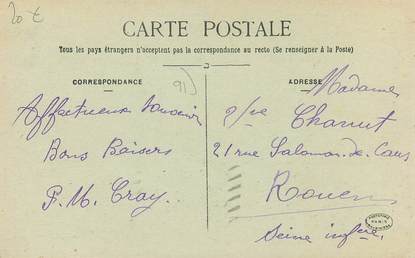 20 €
CARTE POSTALE
Tous les pays étrangers n'acceptent pas la correspondance au recto (Se renseigner à la Poste)
CORRESPONDANCE
91)
Affectueux souvenir
Bons Baisers
ADRESSE
Madame
Chanut
21 rue Salomon de Caus
Rouen
Seine infre.